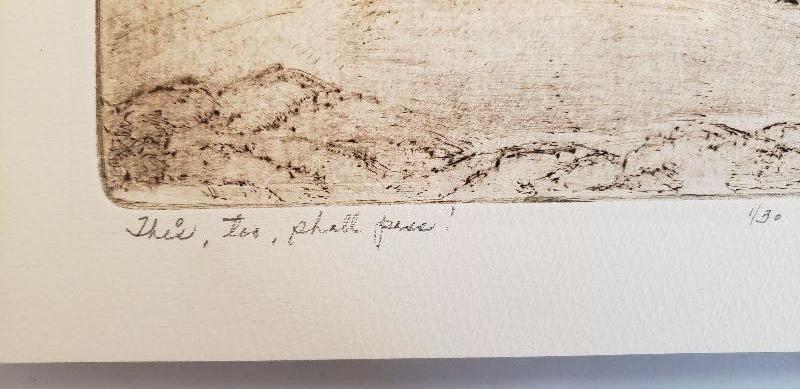 This, too, shall pass! 1/30